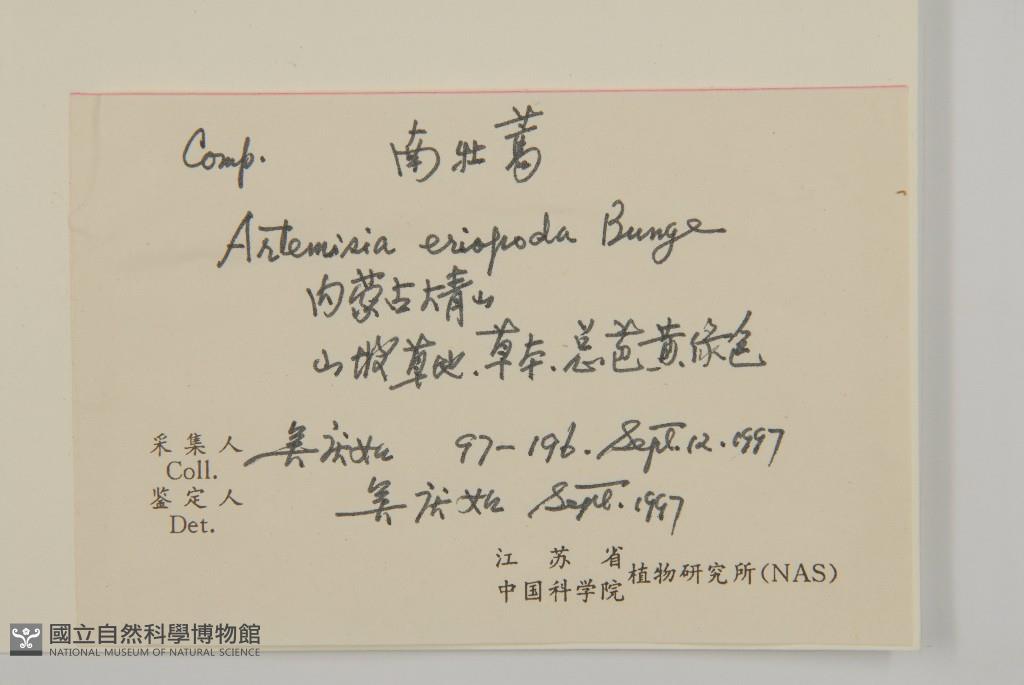 Comp. 南牡蒿
Artemisia eriopoda Bunge
内蒙古大青山
山坡草地、草本、总苞黄绿色
采集人 吴庆如 97-196. Sept. 12. 1997
Coll.
鉴定人 吴庆如 Sept. 1997
Det.
江苏省
中国科学院 植物研究所(NAS)
國立自然科學博物館
NATIONAL MUSEUM OF NATURAL SCIENCE